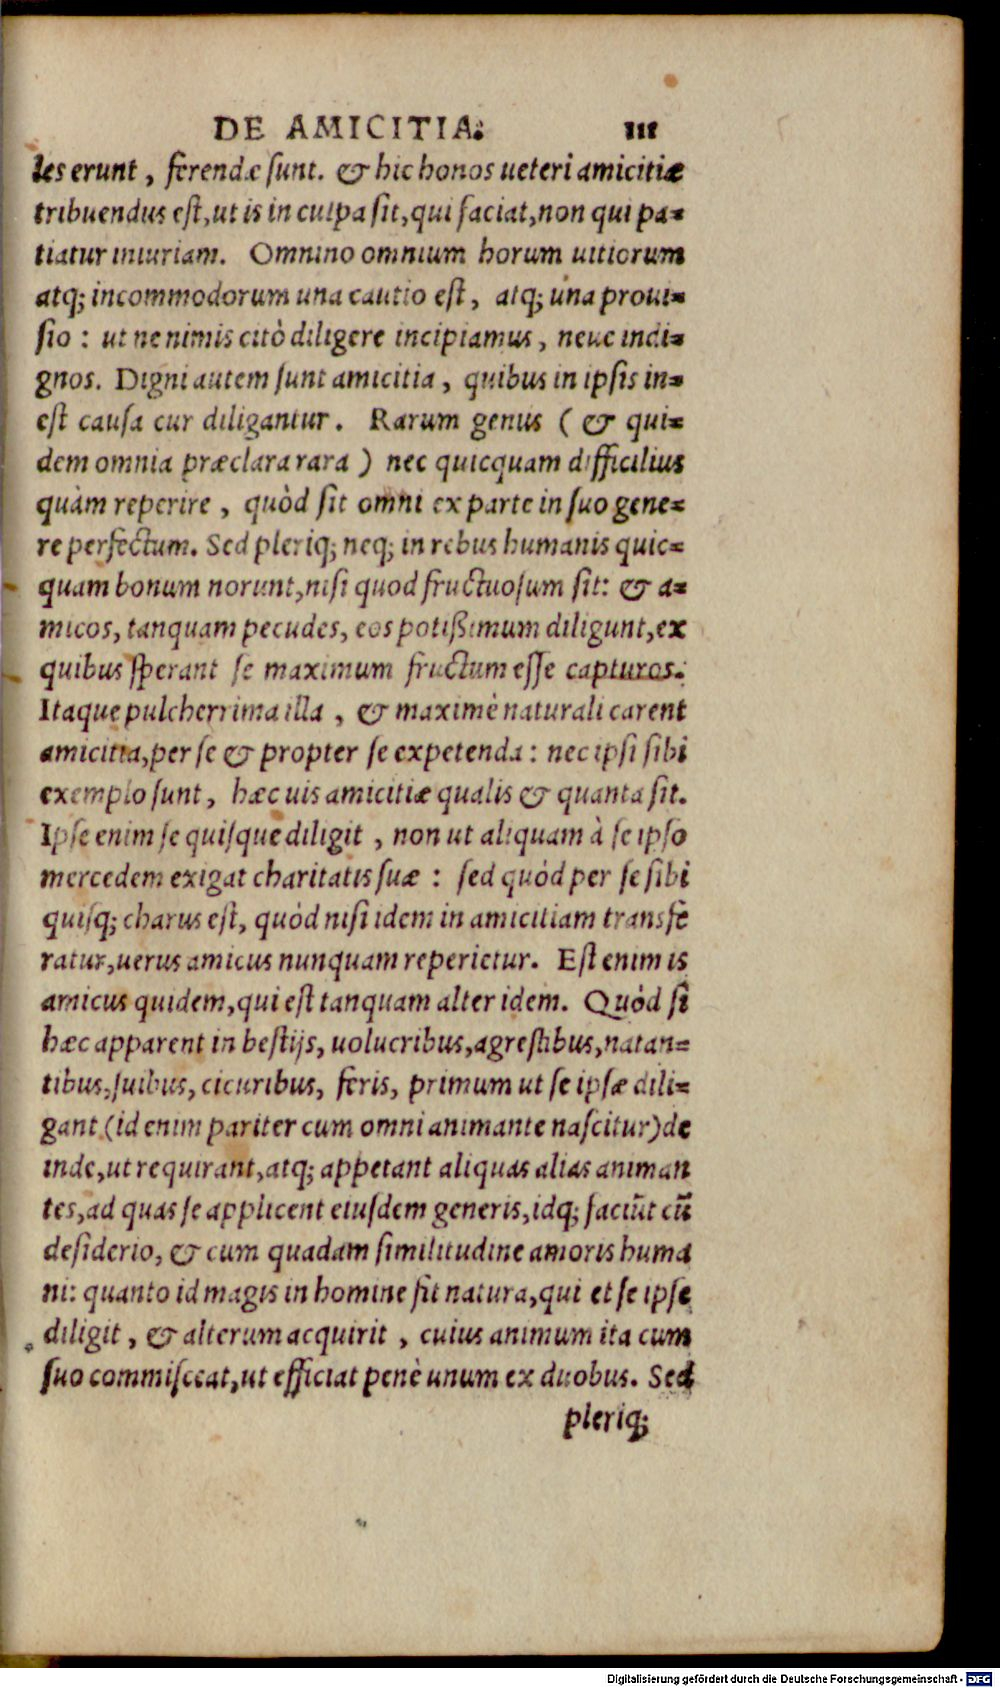 DE AMICITIA. 111
les erunt, ferendæ sunt. & hic honos ueteri amicitiæ
tribuendus est, ut is in culpa sit, qui faciat, non qui pa=
tiatur iniuriam. Omnino omnium horum uitiorum
atq; incommodorum una cautio est, atq; una proui=
sio : ut ne nimis citò diligere incipiamus, neue indi=
gnos. Digni autem sunt amicitia, quibus in ipsis in=
est causa cur diligantur. Rarum genus ( & qui=
dem omnia præclara rara ) nec quicquam difficilius
quàm reperire, quòd sit omni ex parte in suo gene=
re perfectum. Sed pleriq; neq; in rebus humanis quic=
quam bonum norunt, nisi quod fructuosum sit: & a=
micos, tanquam pecudes, eos potißimum diligunt, ex
quibus sperant se maximum fructum esse capturos.
Itaque pulcherrima illa, & maximè naturali carent
amicitia, per se & propter se expetenda : nec ipsi sibi
exemplo sunt, hæc uis amicitiæ qualis & quanta sit.
Ipse enim se quisque diligit, non ut aliquam à se ipso
mercedem exigat charitatis suæ : sed quòd per se sibi
quisq; charus est, quòd nisi idem in amicitiam transfe
ratur, uerus amicus nunquam reperietur. Est enim is
amicus quidem, qui est tanquam alter idem. Quòd si
hæc apparent in bestijs, uolucribus, agrestibus, natan=
tibus, suibus, cicuribus, feris, primum ut se ipsæ dili=
gant (id enim pariter cum omni animante nascitur) de
inde, ut requirant, atq; appetant aliquas alias animan
tes, ad quas se applicent eiusdem generis, idq; faciūt cū
desiderio, & cum quadam similitudine amoris huma
ni: quanto id magis in homine fit natura, qui et se ipse
diligit, & alterum acquirit, cuius animum ita cum
suo commisceat, ut efficiat penè unum ex duobus. Sed
pleriq;
Digitalisierung gefördert durch die Deutsche Forschungsgemeinschaft - DFG